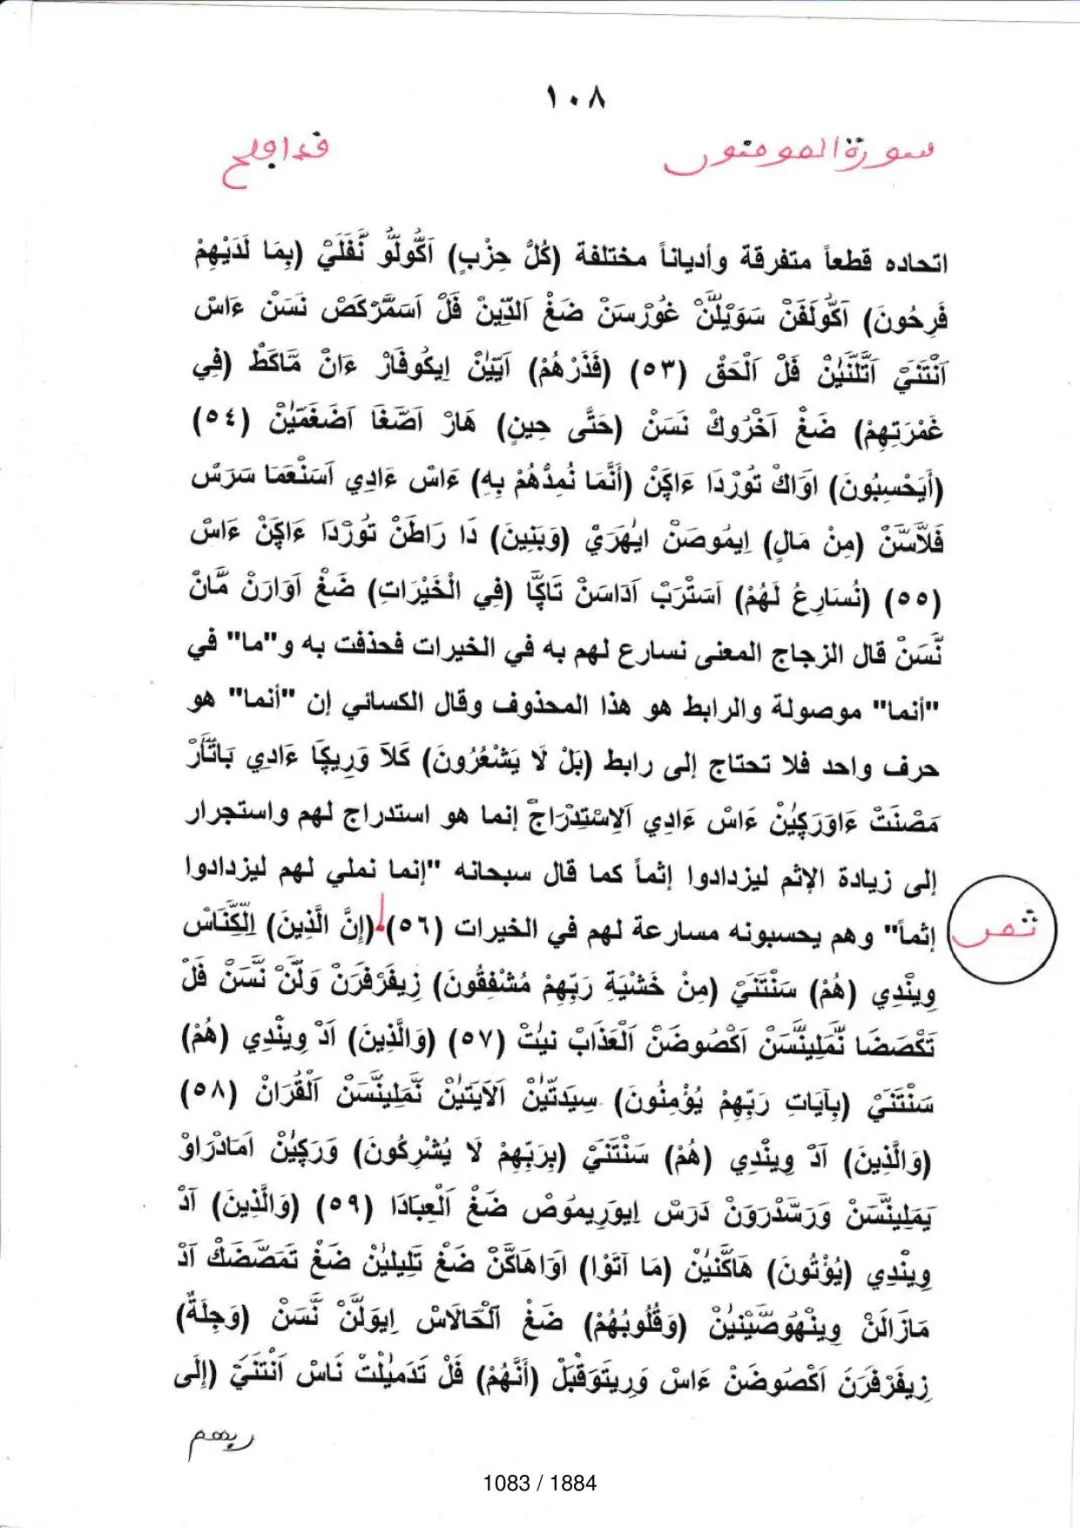 ١٠٨
سورة المومنون
قد افلح
اتحاده قطعاً متفرقة وأدياناً مختلفة (كُلُّ حِزْبٍ) اَكُولُّو نَّفَلَيْ (بِمَا لَدَيْهِمْ
فَرِحُونَ) اَكُّولَفَنْ سَوَيْلَنَّ غُورْسَنْ ضَغْ اَلدِّينْ فَلْ اَسَمَّرْكَضْ نَسَنْ ءَاسْ
اَنْتَنَيْ اَتَّلَنَيْنْ فَلْ اَلْحَقْ (٥٣) (فَذَرْهُمْ) اَيَّيْنْ اِيكُوفَارْ ءَانْ مَّاكَطْ (فِي
غَمْرَتِهِمْ) ضَغْ اَخْرُوكْ نَسَنْ (حَتَّى حِينٍ) هَارْ اَصَّغَا اَضَغَمَّيْنْ (٥٤)
(أَيَحْسِبُونَ) اوَاكْ تُورْدَا ءَاكِنْ (أَنَّمَا نُمِدُّهُمْ بِهِ) ءَاسْ ءَادِي اَسَنْغَمَا سَرَسْ
فَلَّاسَّنْ (مِنْ مَالٍ) اِيمُوصَنْ ايْهَرَيْ (وَبَنِينَ) دَا رَاطَنْ تُورْدَا ءَاكِنْ ءَاسْ
(٥٥) (نُسَارِعُ لَهُمْ) اَسَتْرَبْ اَدَاسَنْ تَاكَا (فِي الْخَيْرَاتِ) ضَغْ اَوَارَنْ مَّانْ
نَّسَنْ قال الزجاج المعنى نسارع لهم به في الخيرات فحذفت به و"ما" في
"أنما" موصولة والرابط هو هذا المحذوف وقال الكسائي إن "أنما" هو
حرف واحد فلا تحتاج إلى رابط (بَلْ لَا يَشْعُرُونَ) كَلَا وَرِيكَا ءَادِي بَاتَّارْ
مَصْنَتْ ءَاوَرَكَيْنْ ءَاسْ ءَادِي اَلِاسْتِدْرَاجْ إنما هو استدراج لهم واستجرار
إلى زيادة الإثم ليزدادوا إثماً كما قال سبحانه "إنما نملي لهم ليزدادوا
إثماً" وهم يحسبونه مسارعة لهم في الخيرات (٥٦) (إِنَّ الَّذِينَ) اِلْكَنَاسْ
ثمن
وِينْدِي (هُمْ) سَنْتَنَيْ (مِنْ خَشْيَةِ رَبِّهِمْ مُشْفِقُونَ) زِيفَرْفَرَنْ وَلَنْ نَّسَنْ فَلْ
تَكْصَضَا نَّمَلِينَّسَنْ اَكْصُوضَنْ اَلْعَذَابْ نيَتْ (٥٧) (وَالَّذِينَ) اَدْ وِينْدِي (هُمْ)
سَنْتَنَيْ (بِآيَاتِ رَبِّهِمْ يُؤْمِنُونَ) سِيدَتَيْنْ اَلَايَتَيْنْ نَّمَلِينَّسَنْ اَلْقُرَانْ (٥٨)
(وَالَّذِينَ) اَدْ وِينْدِي (هُمْ) سَنْتَنَيْ (بِرَبِّهِمْ لَا يُشْرِكُونَ) وَرَكَيْنْ اَمَادْرَاوْ
يَمَلِينَّسَنْ وَرَسْدَرَوَنْ دَرَسْ اِيوَرِيمُوضْ ضَغْ اَلْعِبَادَا (٥٩) (وَالَّذِينَ) اَدْ
وِينْدِي (يُؤْتُونَ) هَاكَنَيْنْ (مَا آتَوْا) اوَاهَاكَنْ ضَغْ تَلِيلَيْنْ ضَغْ تَمَصَّضَكْ اَدْ
مَازَالَنْ وِينْهُوصَّيْنِيْنْ (وَقُلُوبُهُمْ) ضَغْ اَلْحَالَاسْ اِيوَلَنْ نَّسَنْ (وَجِلَةٌ)
زِيفَرْفَرَنْ اَكْصُوضَنْ ءَاسْ وَرِيتَوَقْبَلْ (أَنَّهُمْ) فَلْ تَدَمِيْلَتْ نَاسْ اَنْتَنَيْ (إِلَى
ربهم
1083 / 1884